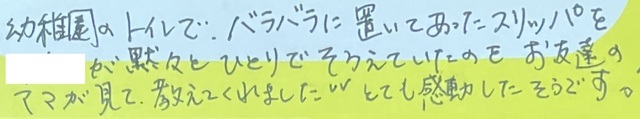 幼稚園のトイレで、バラバラに置いてあったスリッパを
が黙々とひとりでそろえていたのをお友達の
ママが見て、教えてくれました!! とても感動したそうです。